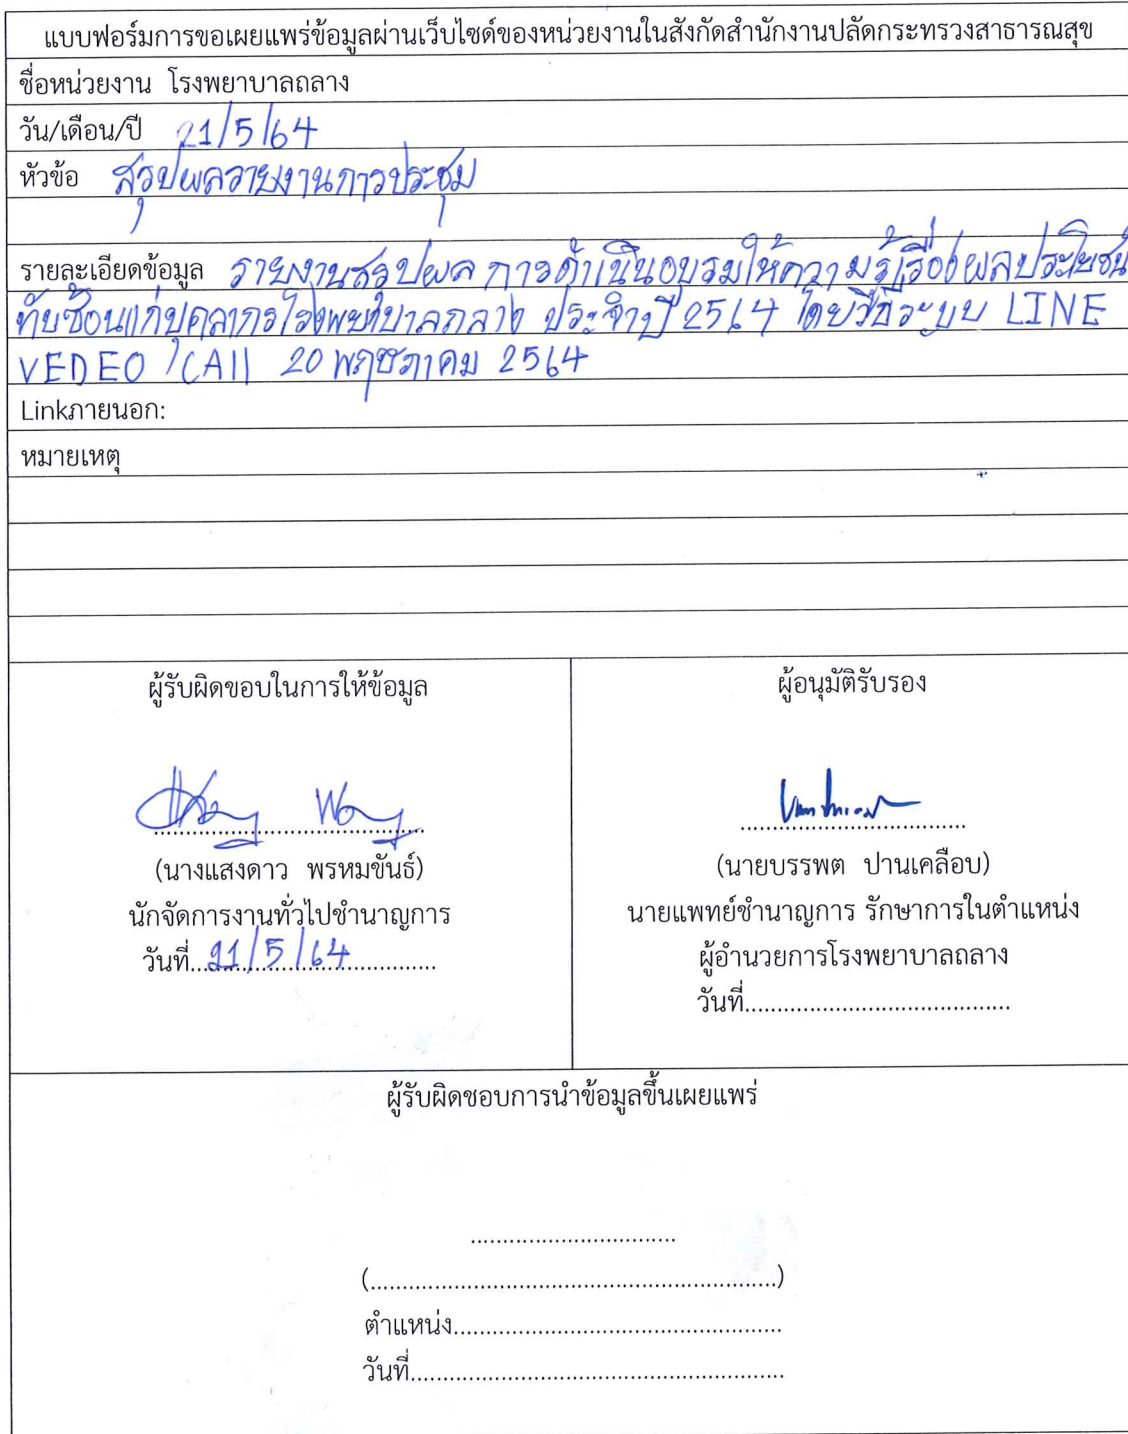 แบบฟอร์มการขอเผยแพร่ข้อมูลผ่านเว็บไซด์ของหน่วยงานในสังกัดสำนักงานปลัดกระทรวงสาธารณสุข
ชื่อหน่วยงาน โรงพยาบาลถลาง
วัน/เดือน/ปี 21/5/64
หัวข้อ สรุปผลรายงานการประชุม
รายละเอียดข้อมูล รายงานสรุปผล การดำเนินอบรมให้ความรู้เรื่องผลประโยชน์
ทับซ้อนแก่บุคลากรโรงพยาบาลถลาง ประจำปี 2564 โดยวิธีระบบ LINE
VEDEO /CAll 20 พฤษภาคม 2564
Linkภายนอก:
หมายเหตุ
ผู้รับผิดขอบในการให้ข้อมูล
(นางแสงดาว พรหมขันธ์)
นักจัดการงานทั่วไปชำนาญการ
วันที่..21/5/64..............
ผู้อนุมัติรับรอง
(นายบรรพต ปานเคลือบ)
นายแพทย์ชำนาญการ รักษาการในตำแหน่ง
ผู้อำนวยการโรงพยาบาลถลาง
วันที่.........................................
ผู้รับผิดชอบการนำข้อมูลขึ้นเผยแพร่
................................
(...............................................................)
ตำแหน่ง..................................................
วันที่.........................................................